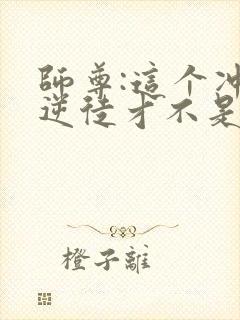 師尊:這个冲
逆徒才不是
橙子離